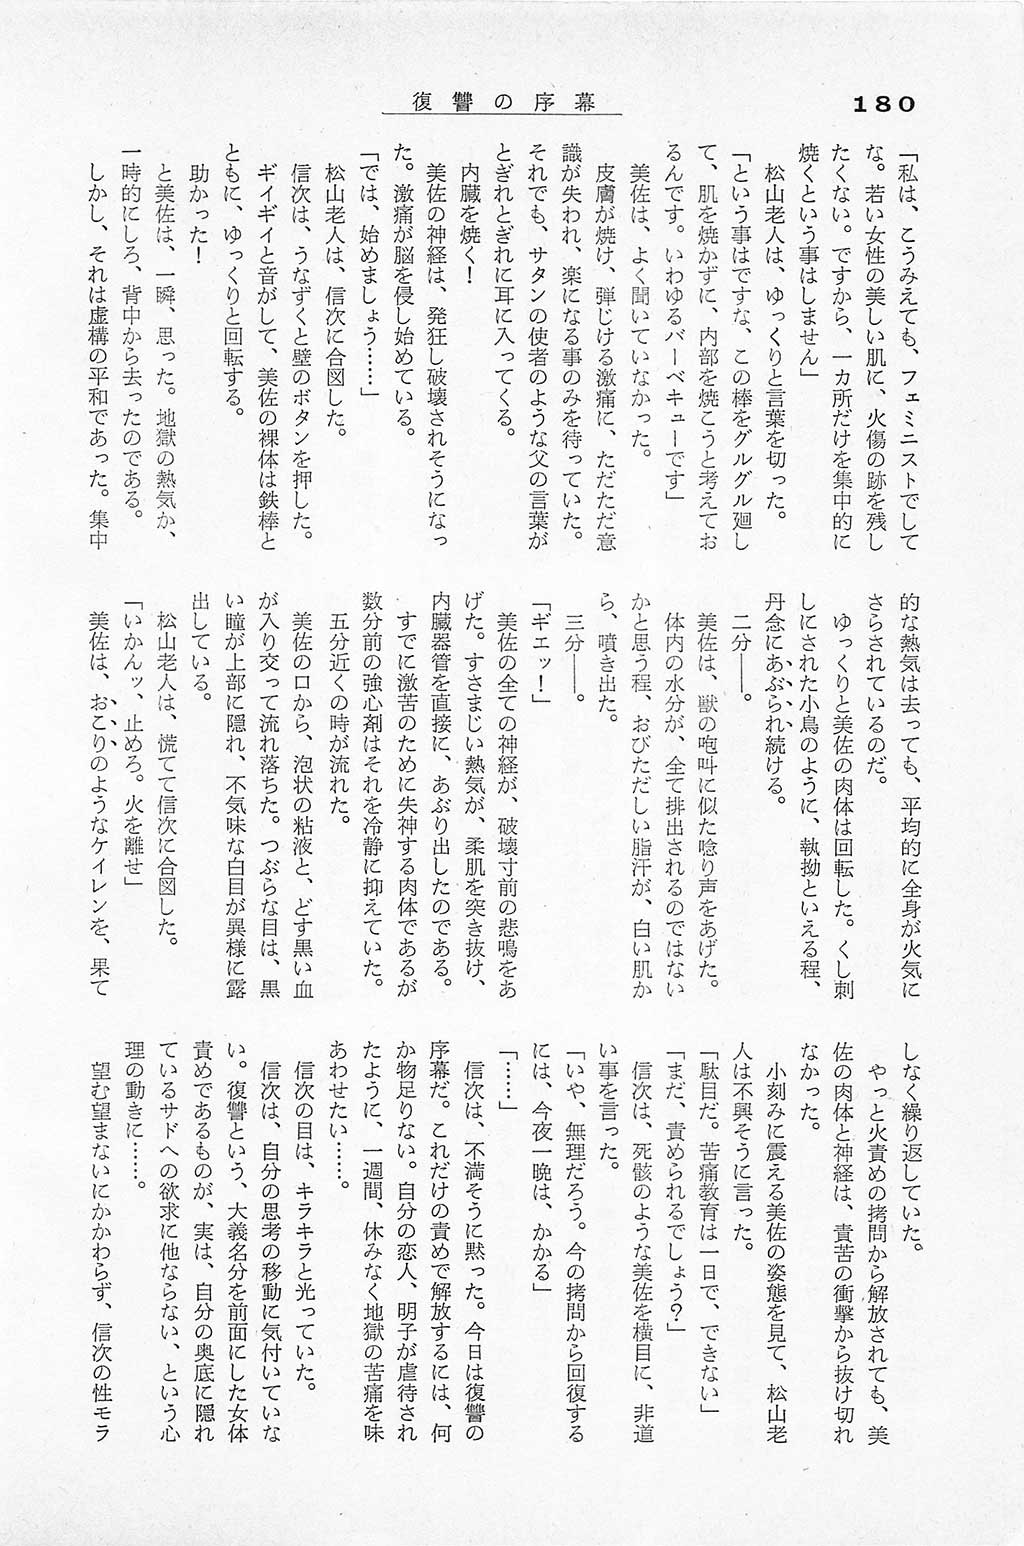 180
復讐の序幕
「私は、こうみえても、フェミニストでして
な。若い女性の美しい肌に、火傷の跡を残し
たくない。ですから、一カ所だけを集中的に
焼くという事はしません」
松山老人は、ゆっくりと言葉を切った。
「という事はですな、この棒をグルグル廻し
て、肌を焼かずに、内部を焼こうと考えてお
るんです。いわゆるバーベキューです」
美佐は、よく聞いていなかった。
皮膚が焼け、弾じける激痛に、ただただ意
識が失われ、楽になる事のみを待っていた。
それでも、サタンの使者のような父の言葉が
とぎれとぎれに耳に入ってくる。
内臓を焼く！
美佐の神経は、発狂し破壊されそうになっ
た。激痛が脳を侵し始めている。
「では、始めましょう……」
松山老人は、信次に合図した。
信次は、うなずくと壁のボタンを押した。
ギイギイと音がして、美佐の裸体は鉄棒と
ともに、ゆっくりと回転する。
助かった！
と美佐は、一瞬、思った。地獄の熱気か、
一時的にしろ、背中から去ったのである。
しかし、それは虚構の平和であった。集中
的な熱気は去っても、平均的に全身が火気に
さらされているのだ。
ゆっくりと美佐の肉体は回転した。くし刺
しにされた小鳥のように、執拗といえる程、
丹念にあぶられ続ける。
二分――。
美佐は、獣の咆叫に似た唸り声をあげた。
体内の水分が、全て排出されるのではない
かと思う程、おびただしい脂汗が、白い肌か
ら、噴き出た。
三分――。
「ギエッ！」
美佐の全ての神経が、破壊寸前の悲鳴をあ
げた。すさまじい熱気が、柔肌を突き抜け、
内臓器管を直接に、あぶり出したのである。
すでに激苦のために失神する肉体であるが
数分前の強心剤はそれを冷静に抑えていた。
五分近くの時が流れた。
美佐の口から、泡状の粘液と、どす黒い血
が入り交って流れ落ちた。つぶらな目は、黒
い瞳が上部に隠れ、不気味な白目が異様に露
出している。
松山老人は、慌てて信次に合図した。
「いかんッ、止めろ。火を離せ」
美佐は、おこりのようなケイレンを、果て
しなく繰り返していた。
やっと火責めの拷問から解放されても、美
佐の肉体と神経は、責苦の衝撃から抜け切れ
なかった。
小刻みに震える美佐の姿態を見て、松山老
人は不興そうに言った。
「駄目だ。苦痛教育は一日で、できない」
「まだ、責められるでしょう？」
信次は、死骸のような美佐を横目に、非道
い事を言った。
「いや、無理だろう。今の拷問から回復する
には、今夜一晩は、かかる」
「……」
信次は、不満そうに黙った。今日は復讐の
序幕だ。これだけの責めで解放するには、何
か物足りない。自分の恋人、明子が虐待され
たように、一週間、休みなく地獄の苦痛を味
あわせたい……。
信次の目は、キラキラと光っていた。
信次は、自分の思考の移動に気付いていな
い。復讐という、大義名分を前面にした女体
責めであるものが、実は、自分の奥底に隠れ
ているサドへの欲求に他ならない、という心
理の動きに……。
望む望まないにかかわらず、信次の性モラ